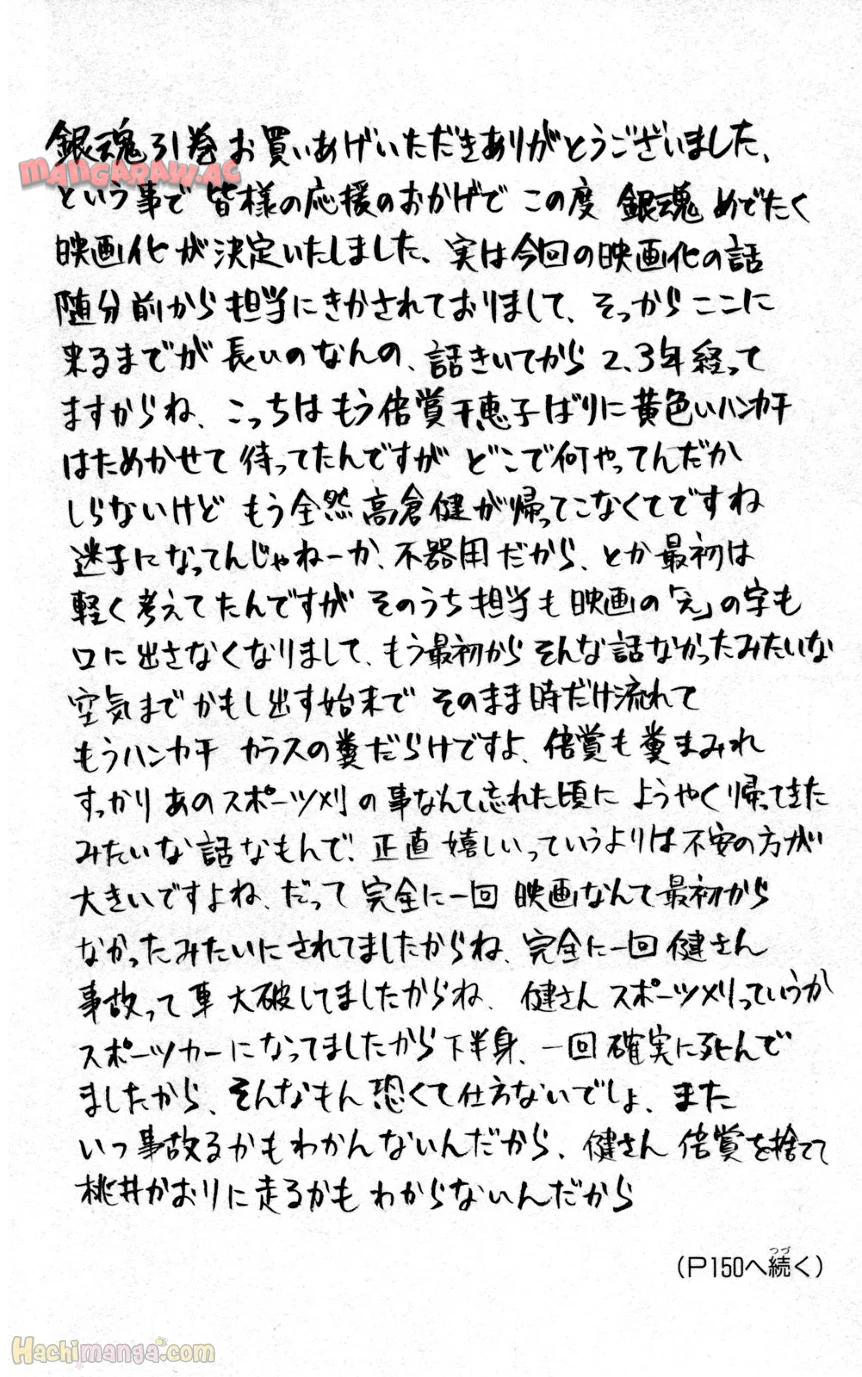 銀魂31巻お買いあげいただきありがとうございました、
MANGARAW.AC
という事で皆様の応援のおかげでこの度 銀魂めでたく
映画化が決定いたしました、実は今回の映画化の話
随分前から担当にきかされておりまして、そっからここに
来るまでが長いのなんの、話きいてから2、3年経って
ますからね、こっちはもう倍賞千恵子ばりに黄色いハンカチ
はためかせて待ってたんですがどこで何やってんだか
しらないけどもう全然高倉健が帰ってこなくてですね
迷子になってんじゃねーか、不器用だから、とか最初は
軽く考えてたんですがそのうち担当も映画の「え」の字も
口に出さなくなりまして、もう最初からそんな話なかったみたいな
空気までかもし出す始末でそのまま時だけ流れて
もうハンカチ カラスの糞だらけですよ、倍賞も糞まみれ
すっかりあのスポーツ刈の事なんて忘れた頃にようやく帰ってきた
みたいな話なもんで、正直嬉しいっていうよりは不安の方が
大きいですよね、だって完全に一回映画なんて最初から
なかったみたいにされてましたからね、完全に一回健さん
事故って車大破してましたからね、健さんスポーツメリっていうか
スポーツカーになってましたから下半身、一回確実に死んで
ましたから、そんなもん恐くて仕方ないでしょ、また
いつ事故るかもわかんないんだから、健さん倍賞を捨てて
桃井かおりに走るかもわからないんだから
(P150へ続く)
つづ
Hachimanga.com!